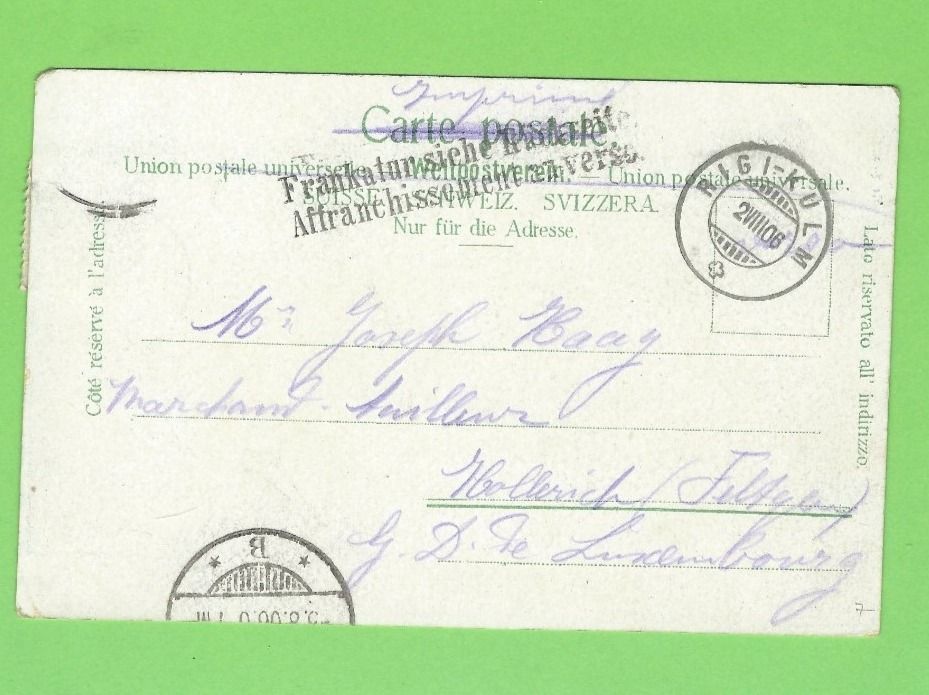 Imprimé
Carte postale.
Union postale universelle. — Weltpostverein. — Union postale universale.
Frankatur siehe Rückseite.
Affranchissement au verso.
SUISSE. SCHWEIZ. SVIZZERA.
Nur für die Adresse.
RIGI-KULM
2VIII06
Côté réservé à l'adresse.
Lato riservato all' indirizzo.
Mr Joseph Haag
Marchand-tailleur
Hollerich (Feltgen)
G. D. de Luxembourg
B
7-